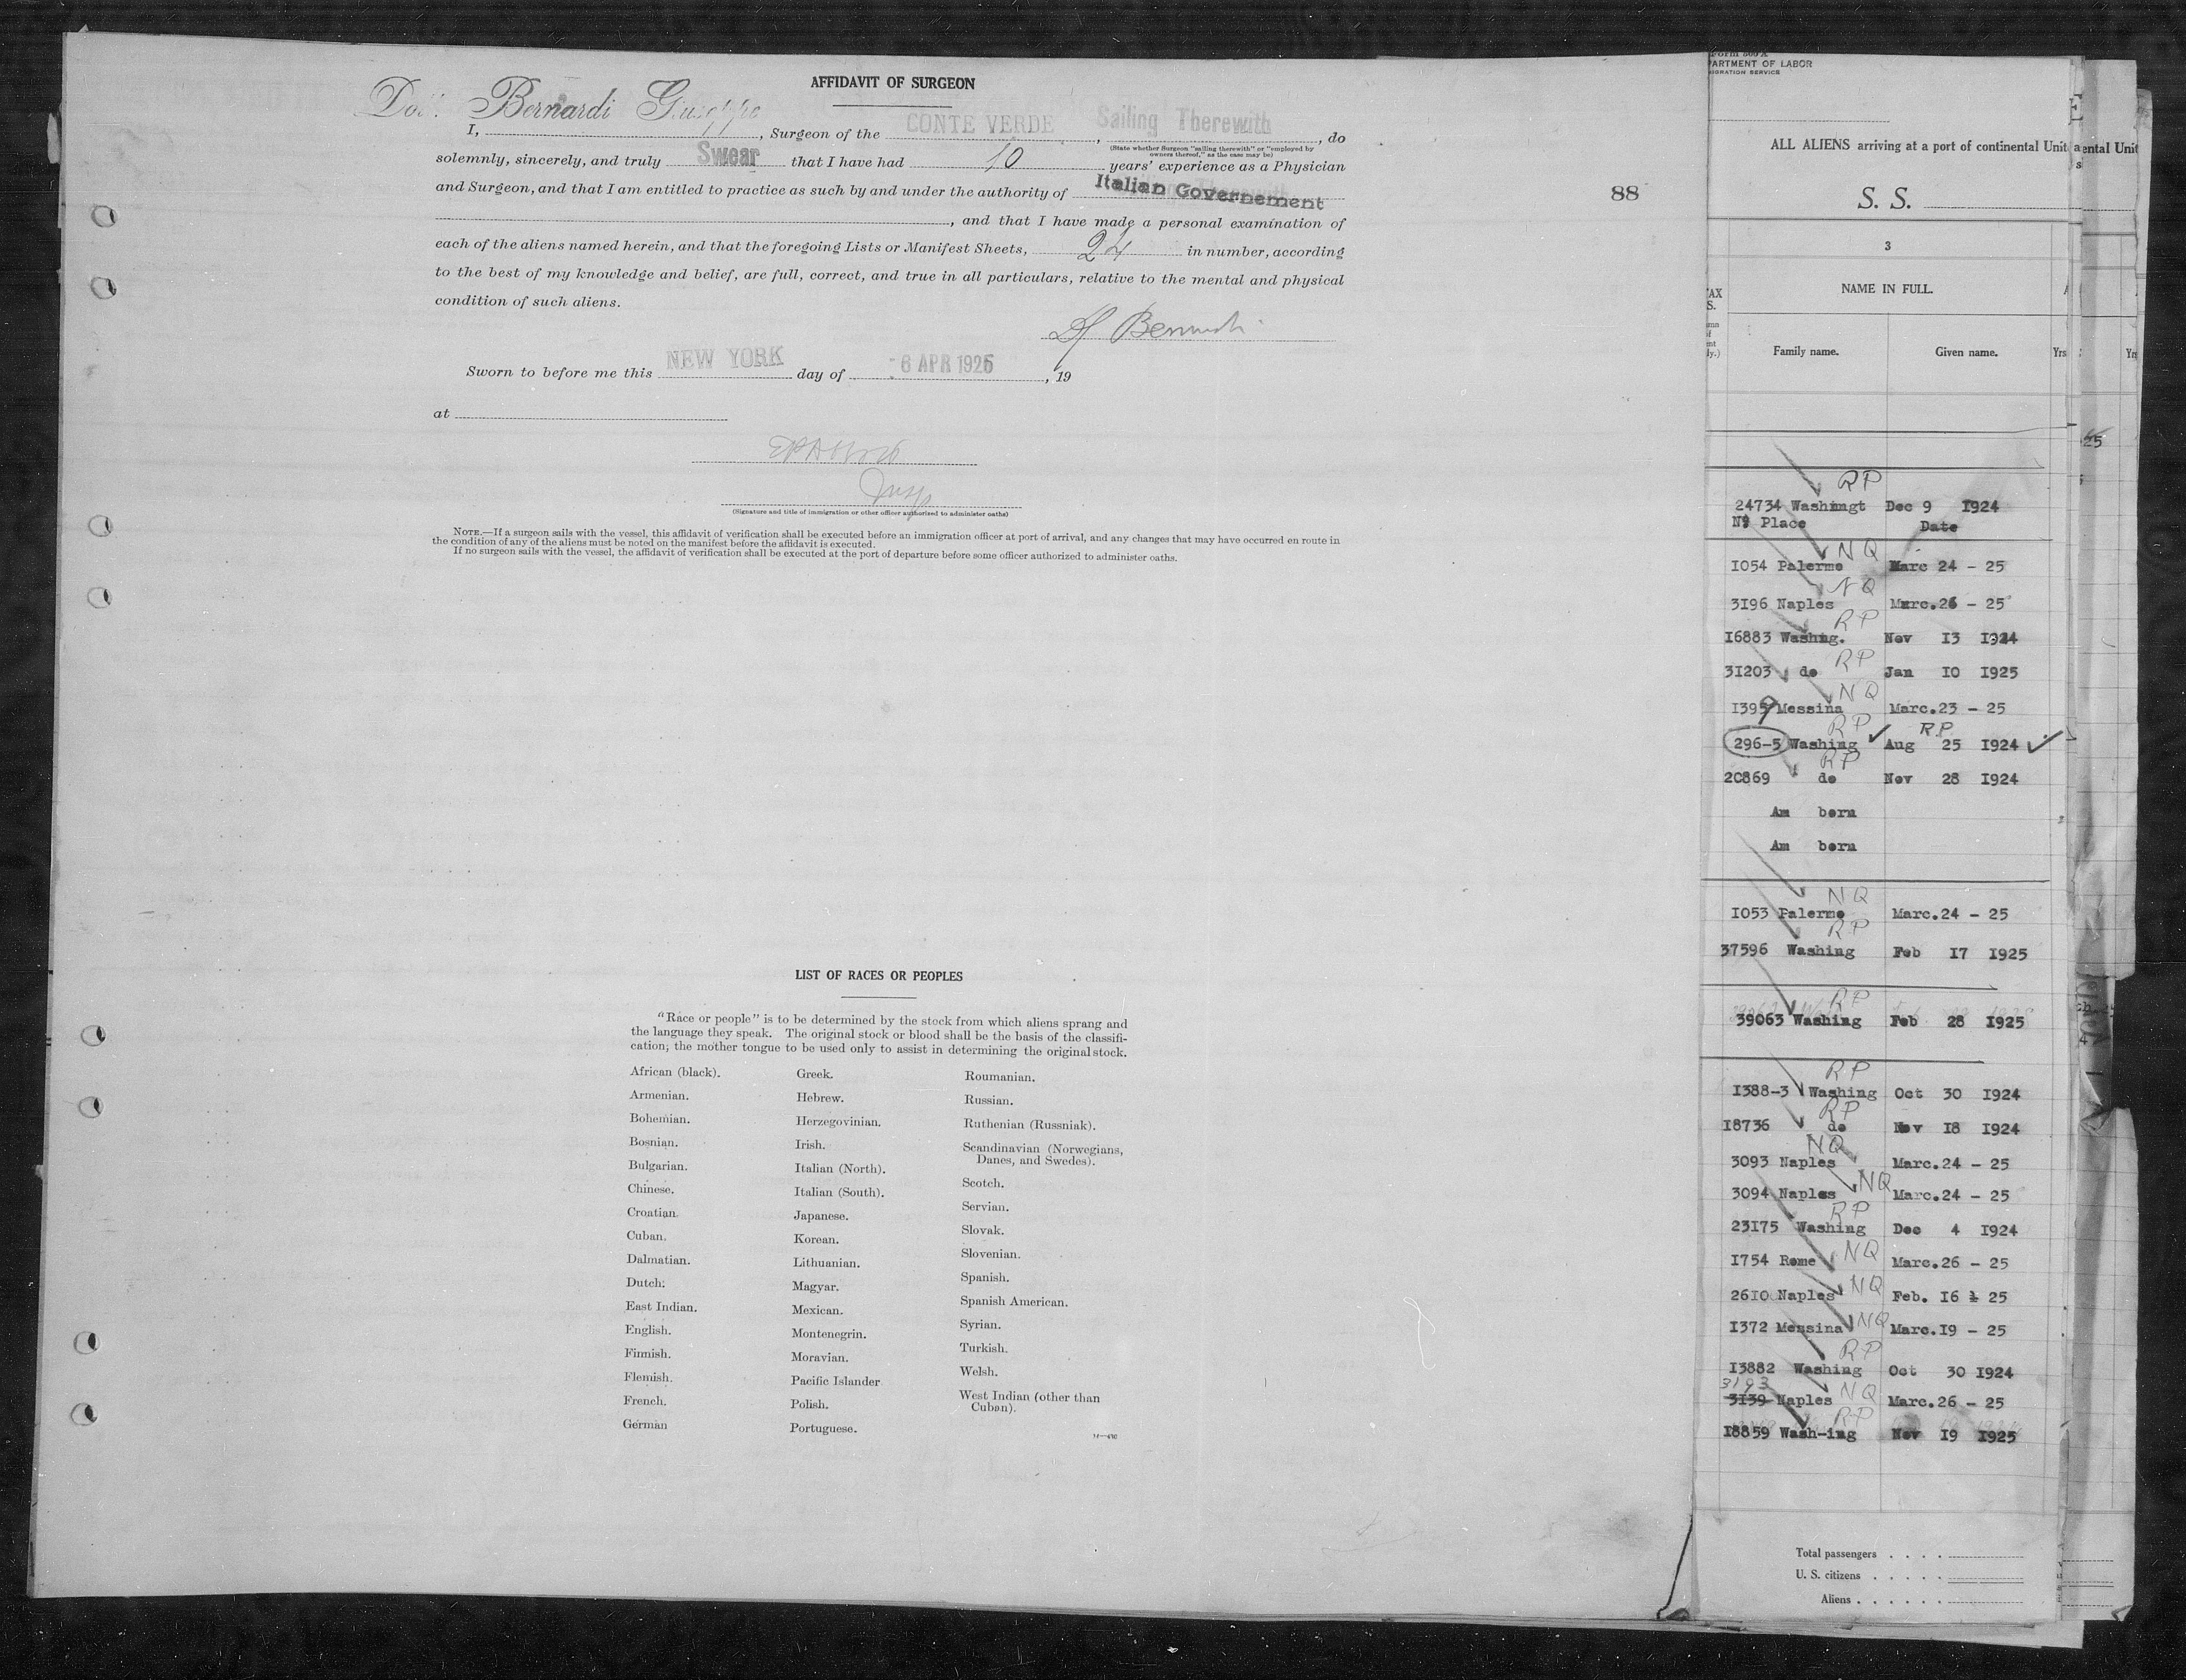 AFFIDAVIT OF SURGEON
Bernardi Giuseppe
I, , Surgeon of the CONTE VERDE , Sailing Therewith , do
(State whether Surgeon "sailing therewith" or "employed by
owners thereof," as the case may be)
solemnly, sincerely, and truly Swear that I have had 10 years' experience as a Physician
and Surgeon, and that I am entitled to practice as such by and under the authority of Italian Governement
, and that I have made a personal examination of
each of the aliens named herein, and that the foregoing Lists or Manifest Sheets, 24 in number, according
to the best of my knowledge and belief, are full, correct, and true in all particulars, relative to the mental and physical
condition of such aliens.
Sworn to before me this NEW YORK day of 6 APR 1925 , 19
at
Insp
(Signature and title of immigration or other officer authorized to administer oaths)
NOTE.—If a surgeon sails with the vessel, this affidavit of verification shall be executed before an immigration officer at port of arrival, and any changes that may have occurred en route in
the condition of any of the aliens must be noted on the manifest before the affidavit is executed.
If no surgeon sails with the vessel, the affidavit of verification shall be executed at the port of departure before some officer authorized to administer oaths.
LIST OF RACES OR PEOPLES
"Race or people" is to be determined by the stock from which aliens sprang and
the language they speak. The original stock or blood shall be the basis of the classifi-
cation; the mother tongue to be used only to assist in determining the original stock.
African (black).
Armenian.
Bohemian.
Bosnian.
Bulgarian.
Chinese.
Croatian.
Cuban.
Dalmatian.
Dutch.
East Indian.
English.
Finnish.
Flemish.
French.
German
Greek.
Hebrew.
Herzegovinian.
Irish.
Italian (North).
Italian (South).
Japanese.
Korean.
Lithuanian.
Magyar.
Mexican.
Montenegrin.
Moravian.
Pacific Islander
Polish.
Portuguese.
Roumanian.
Russian.
Ruthenian (Russniak).
Scandinavian (Norwegians,
Danes, and Swedes).
Scotch.
Servian.
Slovak.
Slovenian.
Spanish.
Spanish American.
Syrian.
Turkish.
Welsh.
West Indian (other than
Cuban).
88
PARTMENT OF LABOR
IGRATION SERVICE
ALL ALIENS arriving at a port of continental Unit
ental Unit
S. S.
3
NAME IN FULL.
Family name. Given name. Yrs
25
RP
24734 Washingt Dec 9 I924
Nº Place Date
NQ
I054 Palermo Marc 24 - 25
NQ
3I96 Naples Marc.26 - 25
RP
I6883 Washng. Nov I3 I924
3I203 do RP Jan I0 I925
NQ
I399 Messina Marc.23 - 25
RP R.P
296-5 Washing Aug 25 I924
RP
20869 do Nov 28 I924
Am born
Am born
NQ
I053 Palermo Marc.24 - 25
RP
37596 Washing Feb I7 I925
RP
39063 Washing Feb 28 I925
RP
I388-3 Washing Oct 30 I924
RP
I8736 do Nov I8 I924
NQ
3093 Naples Marc.24 - 25
3094 Naples NQ Marc.24 - 25
RP
23I75 Washing Dec 4 I924
I754 Rome NQ Marc.26 - 25
26I0 Naples NQ Feb. I6 - 25
I372 Messina NQ Marc.I9 - 25
RP
I3882 Washing Oct 30 I924
3193
3I39 Naples NQ Marc.26 - 25
RP
I8859 Wash-ing Nov I9 I925
Total passengers
U. S. citizens
Aliens